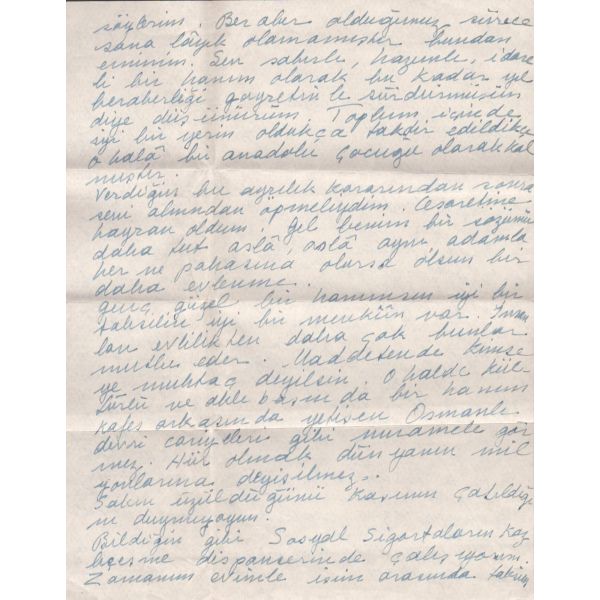 söylerim. Beraber olduğumuz sürece
sana lâyık olamamıştır bundan
eminim. Sen sabırla, hazımla, idare
li bir hanım olarak bu kadar yıl
beraberliği gayretinle sürdürmüşsün
diye düşünürüm. Toplum içinde
iyi bir yerin oldukça takdir edildikçe
o halâ bir anadolu çocuğu olarak kal
mıştır.
Verdiğin bu ayrılık kararından sonra
seni alnından öpmeliydim. Cesaretine
hayran oldum. Gel benim bir sözümü
daha tut aslâ, aslâ aynı adamla
her ne pahasına olursa olsun bir
daha evlenme.
genç güzel bir hanımsın iyi bir
tahsilin iyi bir mevkiin var. İnsa
ları evlilikten daha çok bunlar
mutlu eder. Maddetende kimse
ye muhtaç deyilsin. O halde kül-
türlü ve aklı başında bir hanım
kafes arkasında yetişen Osmanlı
devri cariyeleri gibi muamele gör
mez. Hür olmak dünyanın mil
yonlarına deyişilmez.
Sakın üzüldüğünü kaşının çatıldığı
nı duymayayım.
Bildiğin gibi Sosyal Sigortaların
dispanserinde çalışıyorum.
Zamanım evimle işim arasında